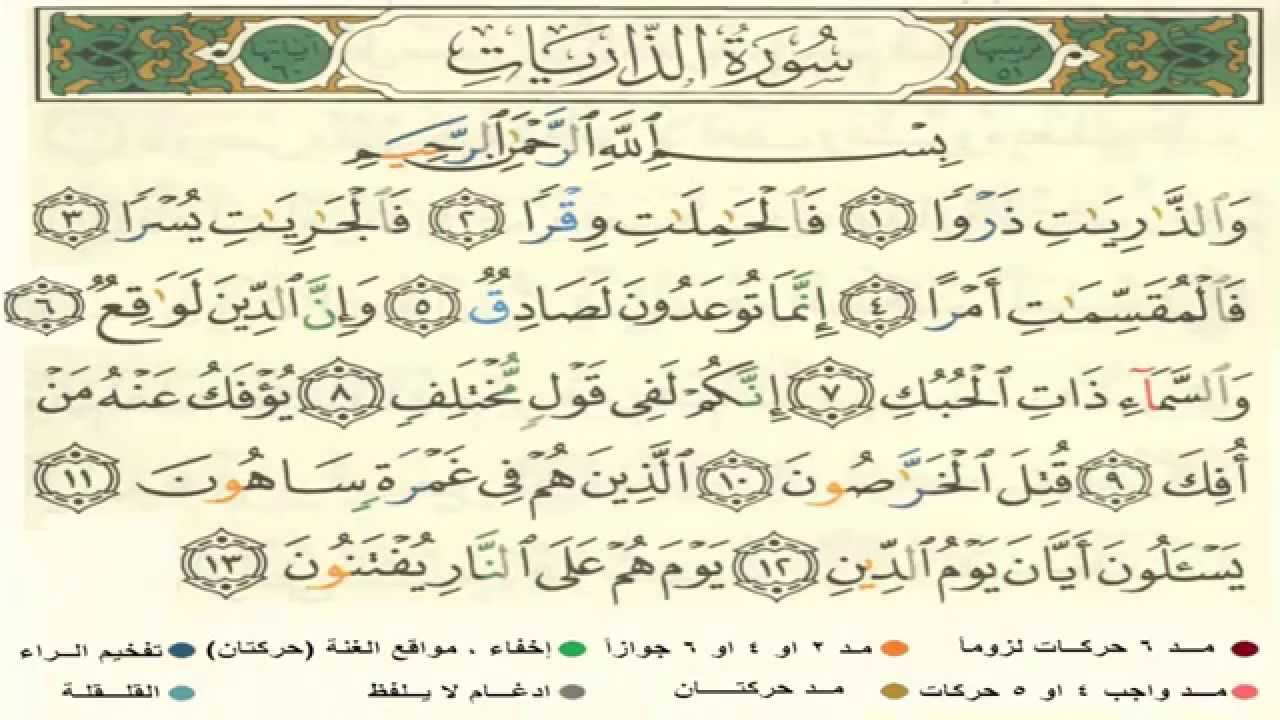 ترتيبها ٥١ سُورَةُ الذَّارِيَاتِ آياتها ٦٠
بِسْمِ ٱللَّهِ ٱلرَّحْمَٰنِ ٱلرَّحِيمِ
وَٱلذَّٰرِيَٰتِ ذَرْوًا ١ فَٱلْحَٰمِلَٰتِ وِقْرًا ٢ فَٱلْجَٰرِيَٰتِ يُسْرًا ٣
فَٱلْمُقَسِّمَٰتِ أَمْرًا ٤ إِنَّمَا تُوعَدُونَ لَصَادِقٌ ٥ وَإِنَّ ٱلدِّينَ لَوَٰقِعٌ ٦
وَٱلسَّمَآءِ ذَاتِ ٱلْحُبُكِ ٧ إِنَّكُمْ لَفِى قَوْلٍ مُّخْتَلِفٍ ٨ يُؤْفَكُ عَنْهُ مَنْ
أُفِكَ ٩ قُتِلَ ٱلْخَرَّٰصُونَ ١٠ ٱلَّذِينَ هُمْ فِى غَمْرَةٍ سَاهُونَ ١١
يَسْـَٔلُونَ أَيَّانَ يَوْمُ ٱلدِّينِ ١٢ يَوْمَ هُمْ عَلَى ٱلنَّارِ يُفْتَنُونَ ١٣
مـد ٦ حركات لزوماً مد ٢ او ٤ او ٦ جوازاً إخفاء ، مواقع الغنة (حركتان) تفخيم الـراء
مـد واجب ٤ او ٥ حركات مد حركتـان ادغـام لا يـلفظ القلـقلة